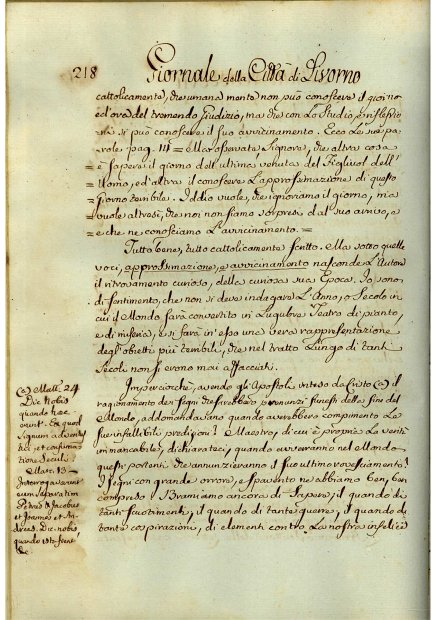 218
Giornale della Città di Livorno
cattolicamente, che umana mente non può conoscere il giorno
ed ora del tremendo giudizio, ma che con lo Studio, e riflessio
ne si può conoscere il suo avvicinamento. Ecco le sue pa-
role pag. 111 = Ma osservate Signora, che altra cosa
= è sapere il giorno dell'ultima venuta del Figlivol dell'
= Uomo, ed'altra il conoscere l'approssimazione di questo
= giorno terribile. Iddio vuole, che ignoriamo il giorno, ma
= vuole altresì, che noi non siamo sorpresi dal suo arrivo, e
= che ne conosciamo l'avvicinamento. =
Tutto bene, tutto cattolicamente scritto. Ma sotto quelle
voci, approssimazione, e avvicinamento nasconde l'Autore
il ritrovamento curioso, della curiosa sua Epoca. Io sono
di sentimento, che non si deve indagare l'Anno, o Secolo in
cui il Mondo sarà convertito in Lugubre Teatro di pianto,
e di miseria, e si farà in esso una vera rappresentazione
degl'obietti più terribili, che nel tratto Lungo di tanti
Secoli non si erono mai affacciati.
Imperciocchè, avendo gli Apostoli inteso da Cristo (a) il
ragionamento dei segni che sarebbero prenunzi funesti della fine del
Mondo, addomandavano quando averebbero compimento le
sue infallibili predizioni? Maestro, di cui è propria la verità
immancabile, dichiarateci, quando avverranno nel Mondo
questi portenti che annunzieranno il suo ultimo rovesciamento?
I segni con grande orrore, e spavento ne abbiamo ben, ben
compreso. Bramiamo ancora di sapere, il quando di
tanti scuotimenti, il quando di tante guerre, il quando di
tante cospirazioni, di elementi contro la nostra infelice
(a) Matt. 24
Dic Nobis
quando haec
erunt. Et quod
Signum adventus
tui, et consuma
tionis Seculi
Marc. 13 —
Interrogaverunt
eum separatim
Petrus et Jacobus
et Joannes et An
dreas. Dic nobis
quando ista fient
&c.